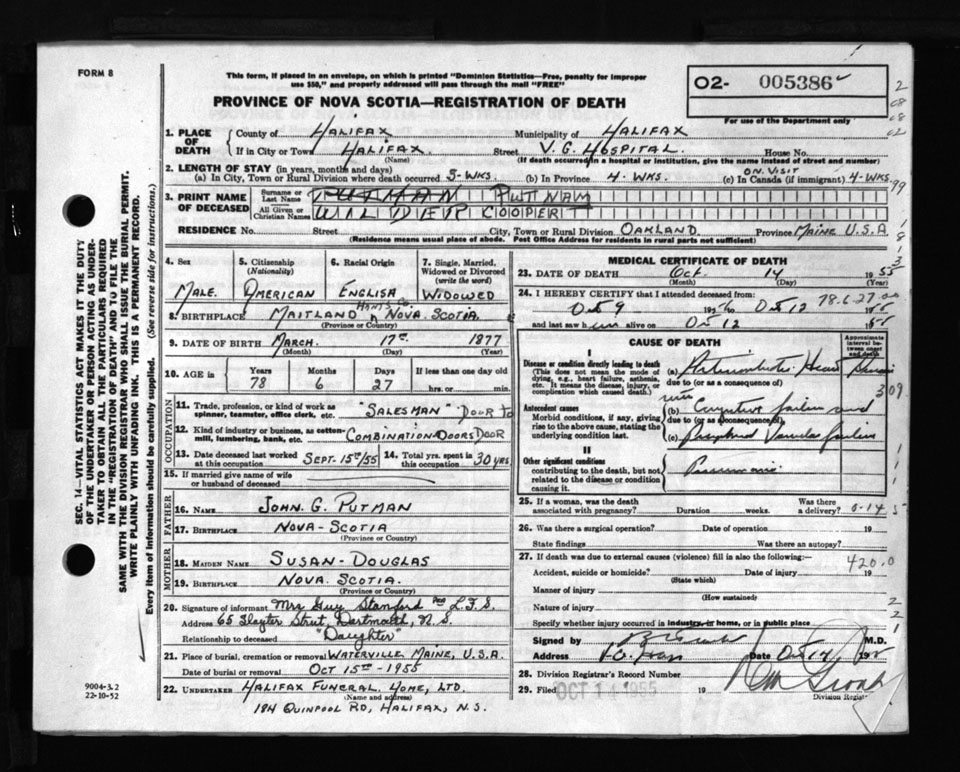 FORM 8
This form, if placed in an envelope, on which is printed "Dominion Statistics—Free, penalty for improper
use $50," and properly addressed will pass through the mail "FREE"
O2- 005386
PROVINCE OF NOVA SCOTIA—REGISTRATION OF DEATH
For use of the Department only
1. PLACE OF DEATH
County of HALIFAX Municipality of HALIFAX
If in City or Town HALIFAX Street V.G. HOSPITAL. House No.
(Name) (If death occurred in a hospital or institution, give the name instead of street and number)
2. LENGTH OF STAY (in years, months and days)
(a) In City, Town or Rural Division where death occurred 5-WKS. (b) In Province 4-WKS. (c) In Canada (if immigrant) ON VISIT 4-WKS
3. PRINT NAME OF DECEASED
Surname or Last Name PUTMAN PUTNAM
All Given or Christian Names WILDER COOPER
RESIDENCE No. Street City, Town or Rural Division OAKLAND. Province MAINE U.S.A
(Residence means usual place of abode. Post Office Address for residents in rural parts not sufficient)
4. Sex MALE.
5. Citizenship (Nationality) AMERICAN
6. Racial Origin ENGLISH
7. Single, Married, Widowed or Divorced (write the word) WIDOWED
8. BIRTHPLACE MAITLAND HANTS CO. NOVA. SCOTIA.
(Province or Country)
9. DATE OF BIRTH MARCH. 17TH. 1877
(Month) (Day) (Year)
10. AGE in Years 78 Months 6 Days 27 If less than one day
hrs. or min.
OCCUPATION
11. Trade, profession, or kind of work as spinner, teamster, office clerk, etc. "SALESMAN" DOOR TO
12. Kind of industry or business, as cotton-mill, lumbering, bank, etc. COMBINATION-DOORS DOOR
13. Date deceased last worked at this occupation SEPT. 15TH/55 14. Total yrs. spent in this occupation 30 YRS.
15. If married give name of wife or husband of deceased
FATHER
16. NAME JOHN. G. PUTMAN
17. BIRTHPLACE NOVA-SCOTIA
(Province or Country)
MOTHER
18. MAIDEN NAME SUSAN-DOUGLAS
19. BIRTHPLACE NOVA. SCOTIA.
(Province or Country)
20. Signature of informant Mrs Guy Stanford Per L.F.S.
Address 65 Slayter Street, Dartmouth, N.S.
Relationship to deceased "Daughter"
21. Place of burial, cremation or removal WATERVILLE MAINE, U.S.A.
Date of burial or removal OCT 15TH-1955
22. UNDERTAKER HALIFAX FUNERAL HOME, LTD.
(Name and address)
184 QUINPOOL RD, HALIFAX, N.S.
MEDICAL CERTIFICATE OF DEATH
23. DATE OF DEATH Oct. 14 1955
(Month) (Day)
24. I HEREBY CERTIFY that I attended deceased from 78.6.27
Oct 9 195 to Oct 12 19
and last saw him alive on Oct 12 19
CAUSE OF DEATH
Approximate interval between onset and death
I
Disease or condition directly leading to death
(This does not mean the mode of dying, e.g., heart failure, asthenia, etc. It means the disease, injury, or complication which caused death.)
(a) Heart
due to (or as a consequence of)
Antecedent causes
Morbid conditions, if any, giving rise to the above cause, stating the underlying condition last.
(b) Congestive failure and
due to (or as a consequence of)
(c) Peripheral Vascular failure
II
Other significant conditions
contributing to the death, but not related to the disease or condition causing it.
309
25. If a woman, was the death associated with pregnancy? Duration weeks. Was there a delivery? 0-14
26. Was there a surgical operation? Date of operation 19
State findings Was there an autopsy?
27. If death was due to external causes (violence) fill in also the following:— 420.0
Accident, suicide or homicide? Date of injury 19
(State which)
Manner of injury
(How sustained)
Nature of injury
Specify whether injury occurred in industry, in home, or in public place
Signed by M.D.
Address Date Oct 14 19
28. Division Registrar's Record Number
29. Filed OCT 14 1955 19
Division Registrar
SEC. 14—VITAL STATISTICS ACT MAKES IT THE DUTY
OF THE UNDERTAKER OR PERSON ACTING AS UNDER-
TAKER TO OBTAIN ALL THE PARTICULARS REQUIRED
IN THE "REGISTRATION OF DEATH" AND TO FILE THE
SAME WITH THE DIVISION REGISTRAR WHO SHALL ISSUE THE BURIAL PERMIT.
WRITE PLAINLY WITH UNFADING INK. THIS IS A PERMANENT RECORD.
Every item of information should be carefully supplied. (See reverse side for instructions.)
9004-3.2
22-10-52